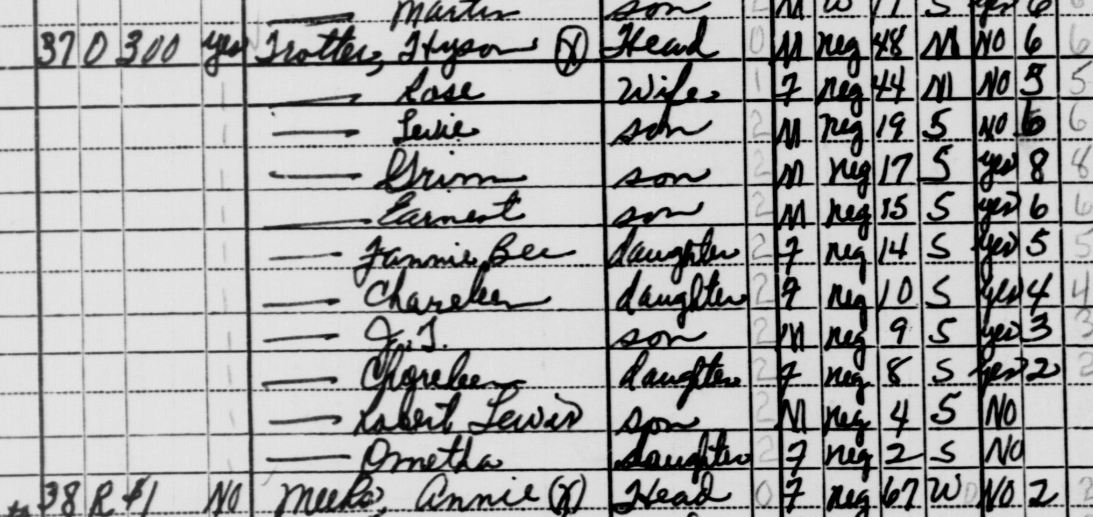 Martin son 2 M W 11 S yes 6
37 O 300 yes Trotter, Hyson (X) Head 0 M neg 48 M No 6 6
— Rose Wife 1 F neg 44 M No 5 5
— son 2 M neg 19 S No 6 6
— Grim son 2 M neg 17 S yes 8 8
— Earnest son 2 M neg 15 S yes 6 6
— Fannie Bee daughter 2 F neg 14 S yes 5 5
— Charleen daughter 2 F neg 10 S yes 4 4
— J. T. son 2 M neg 9 S yes 3 3
— daughter 2 F neg 8 S yes 2 2
— Robert Lewis son 2 M neg 4 S No
— Ometha daughter 2 F neg 2 S No
38 R $1 No Meeks, Annie (X) Head 0 F neg 67 W No 2 2